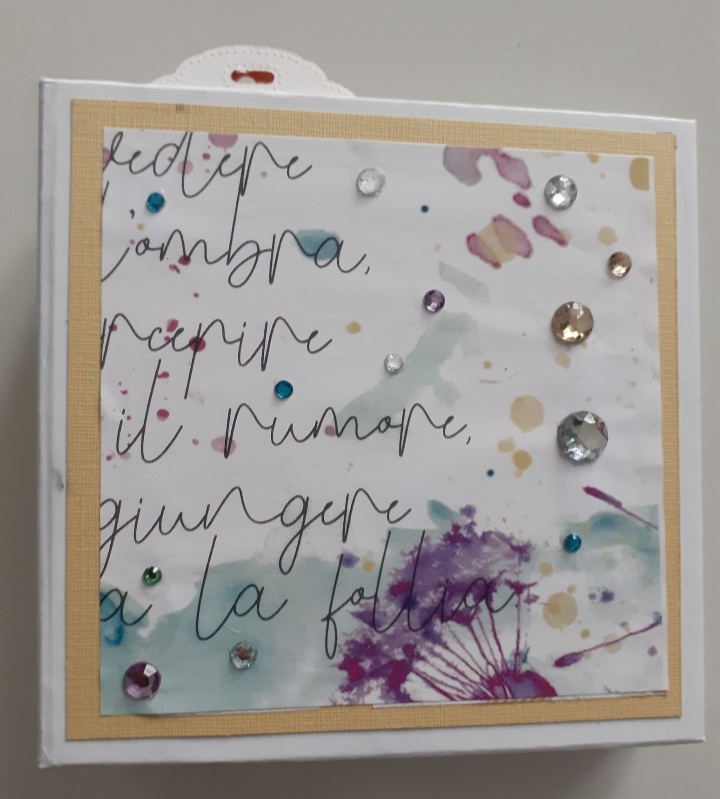 vedere
l'ombra,
rcepire
il rumore,
giungere
a la follia.